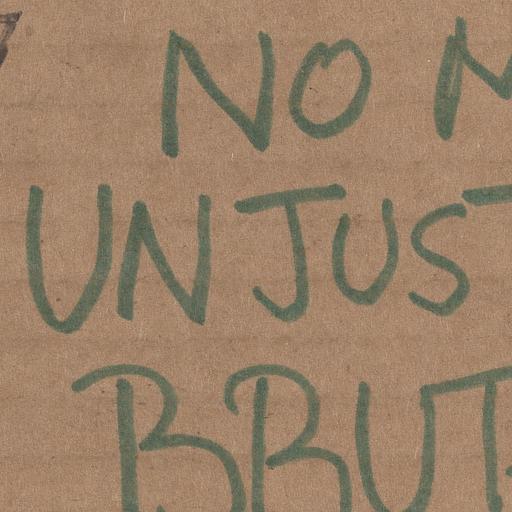 NO M
UNJUST
BRUT